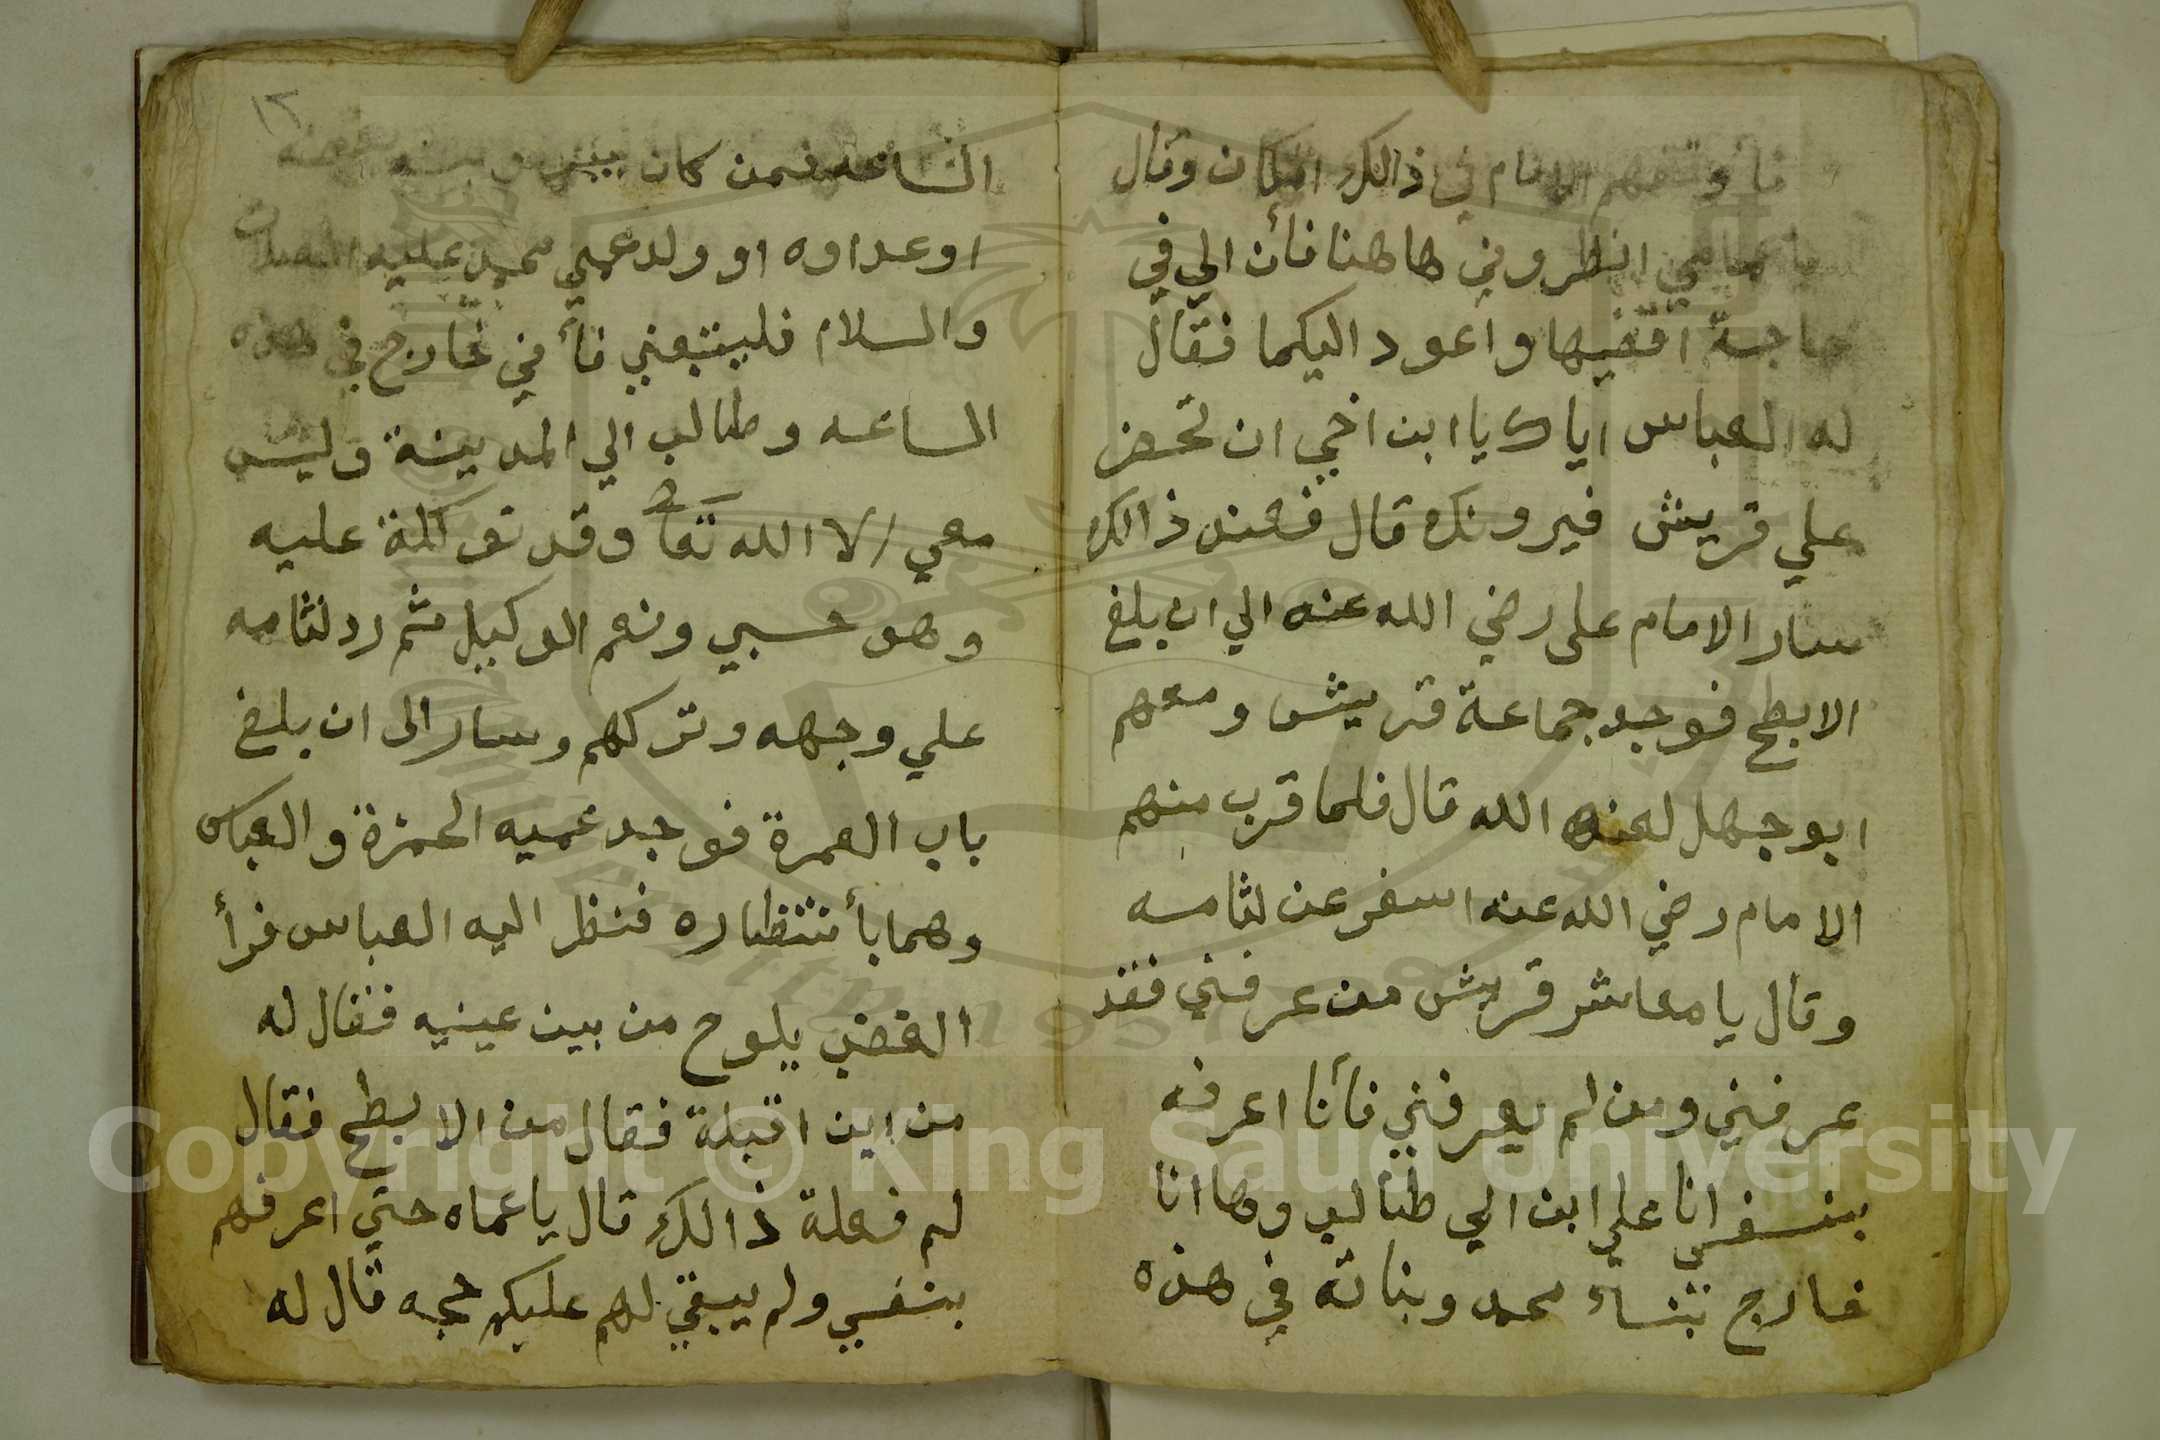 فأوقفهم الامام في ذالك المكان وقال
يا عمامي انظروني هاهنا فأن الي في
حاجة اقضيها واعود اليكما فقال
له العباس اياك يا ابن اخي ان تحضر
علي قريش فيرونك قال فعند ذالك
سار الامام على رضي الله عنه الي ان بلغ
الابطح فوجد جماعة قريش ومعهم
ابو جهل لعنه الله قال فلما قرب منهم
الامام رضي الله عنه اسفر عن لثامه
وقال يا معاشر قريش من عرفني فقد
عرفني ومن لم يعرفني فأنا اعرفه
بنفسي انا علي ابن ابي طالب وها انا
خارج بنساء محمد وبناته في هذه
١٢
الساعه فمن كان بيني وبينه
او عداوه او ولد عمي محمد عليه الصلاة
والسلام فليتبعني فأني خارج في هذه
الساعه وطالب الي المدينة وليس
معي الا الله تعا وقد توكلة عليه
وهو حسبي ونعم الوكيل ثم رد لثامه
علي وجهه وتركهم وسار الى ان بلغ
باب العمرة فوجد عميه الحمزة والعباس
وهما بأنتظاره فنظر اليه العباس فرأ
الغضب يلوح من بين عينيه فقال له
من اين اقبلة فقال من الابطح فقال
لم فعلة ذالك قال يا عماه حتي اعرفهم
بنفسي ولم يبقي لهم عليكم حجه قال له
Copyright © King Saud University